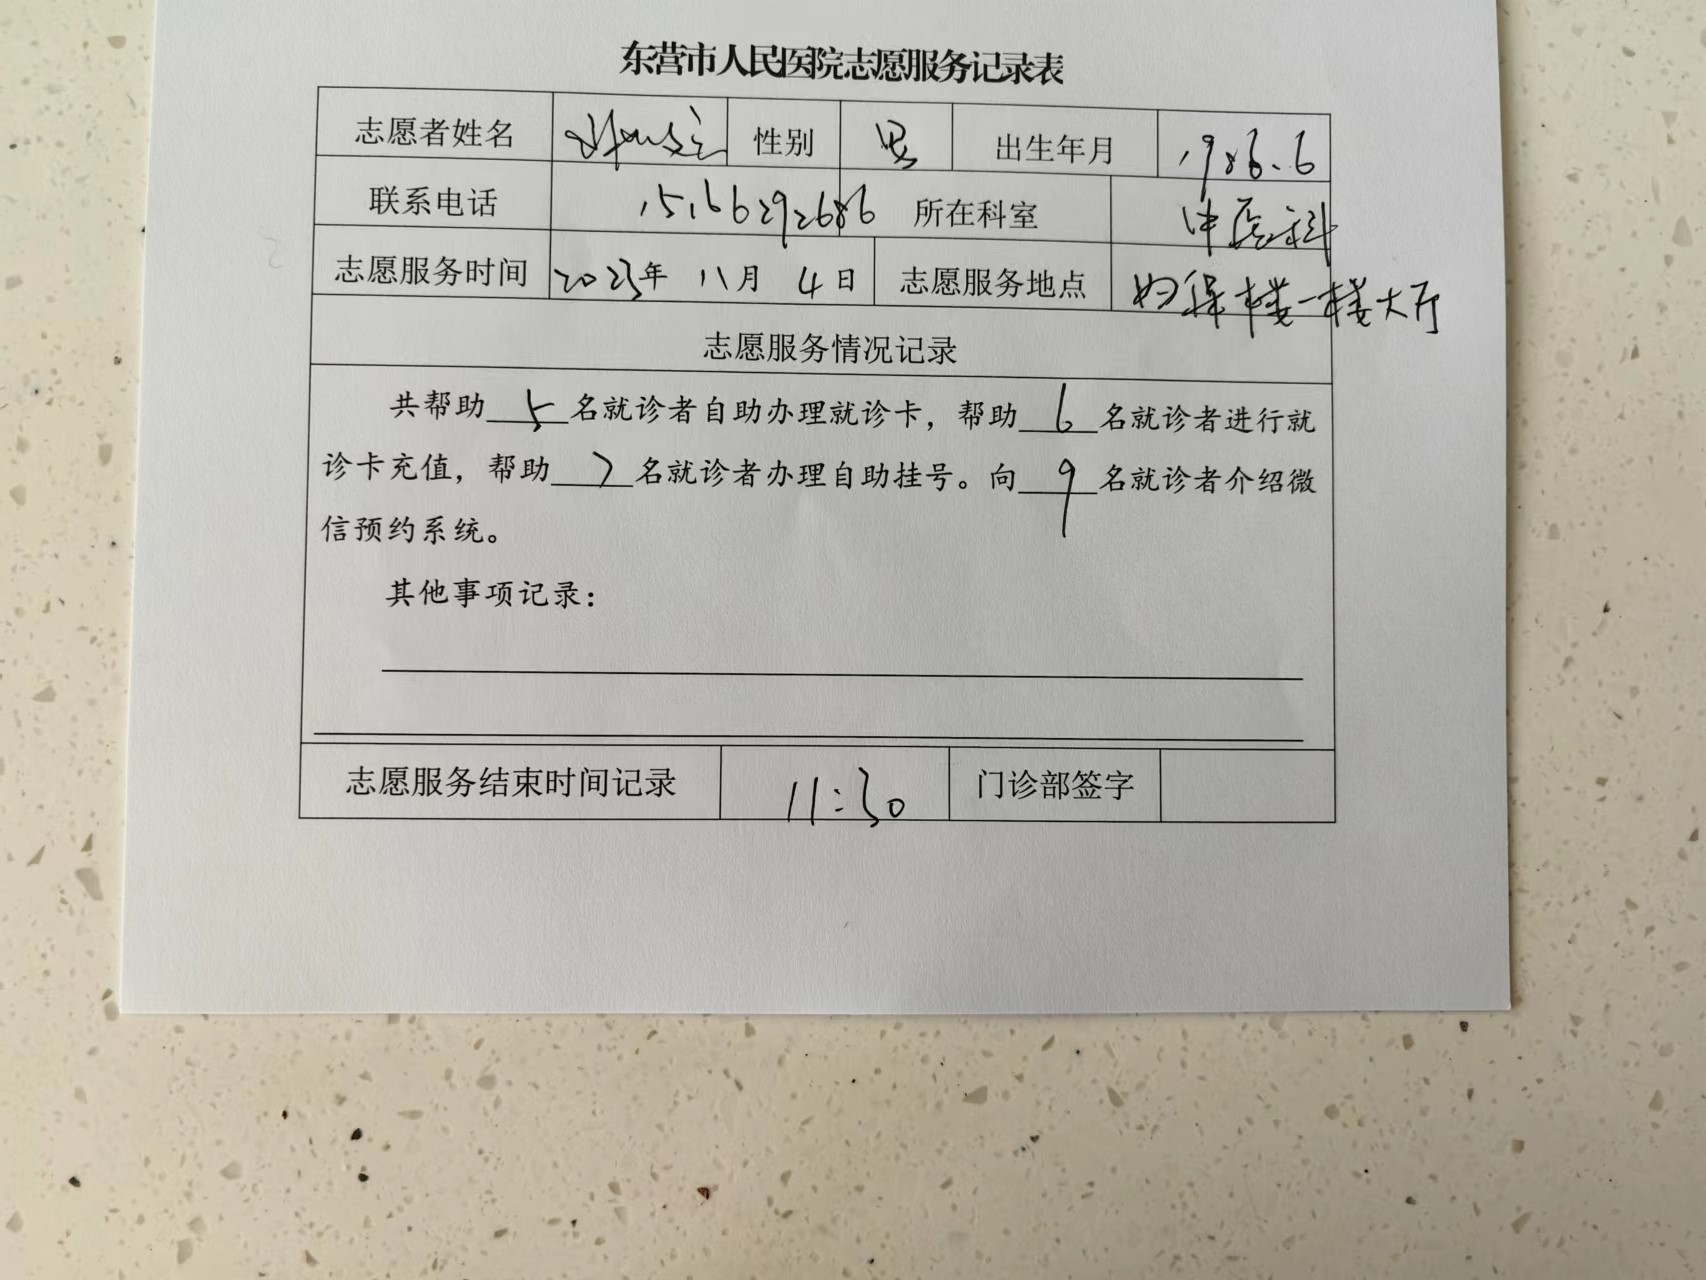 东营市人民医院志愿服务记录表
志愿者姓名 性别 男 出生年月 1986.6
联系电话 15166292686 所在科室 中医科
志愿服务时间 2023年 11月 4日 志愿服务地点 妇保楼一楼大厅
志愿服务情况记录
共帮助 5 名就诊者自助办理就诊卡，帮助 6 名就诊者进行就
诊卡充值，帮助 7 名就诊者办理自助挂号。向 9 名就诊者介绍微
信预约系统。
其他事项记录：
志愿服务结束时间记录 11:30 门诊部签字